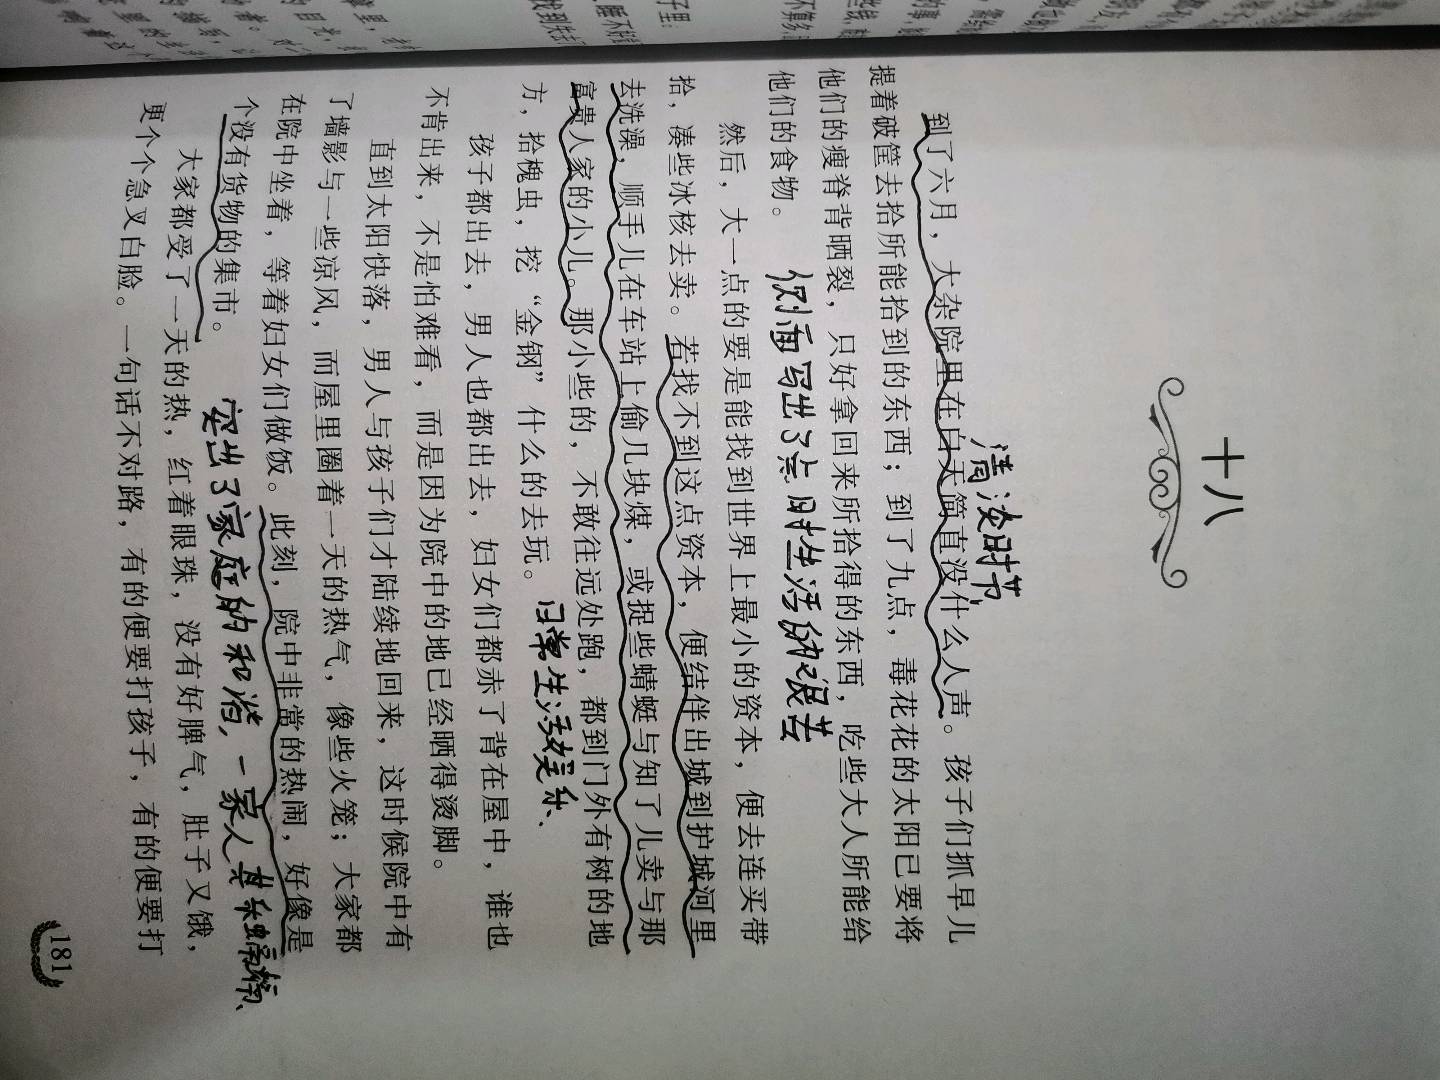 十八
清淡时节
到了六月，大杂院里在白天简直没什么人声。孩子们抓早儿
提着破筐去拾所能拾到的东西；到了九点，毒花花的太阳已要将
他们的瘦脊背晒裂，只好拿回来所拾得的东西，吃些大人所能给
他们的食物。
侧面写出了当时生活的艰苦
然后，大一点的要是能找到世界上最小的资本，便去连买带
拾，凑些冰核去卖。若找不到这点资本，便结伴出城到护城河里
去洗澡，顺手儿在车站上偷几块煤，或捉些蜻蜓与知了儿卖与那
富贵人家的小儿。那小些的，不敢往远处跑，都到门外有树的地
方，拾槐虫，挖“金钢”什么的去玩。
日常生活娱乐、
孩子都出去，男人也都出去，妇女们都赤了背在屋中，谁也
不肯出来，不是怕难看，而是因为院中的地已经晒得烫脚。
直到太阳快落，男人与孩子们才陆续地回来，这时候院中有
了墙影与一些凉风，而屋里圈着一天的热气，像些火笼；大家都
在院中坐着，等着妇女们做饭。此刻，院中非常的热闹，好像是
个没有货物的集市。
突出了家庭的和谐，一家人其乐
大家都受了一天的热，红着眼珠，没有好脾气，肚子又饿，
更个个急叉白脸。一句话不对路，有的便要打孩子，有的便要打
181